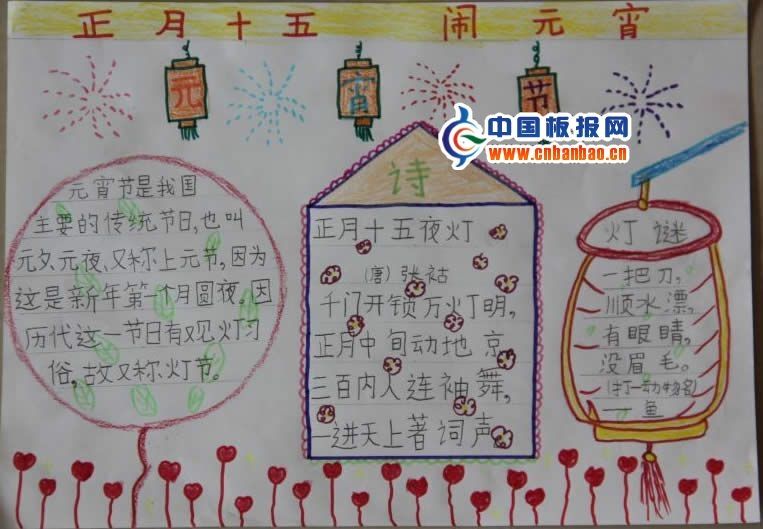 正月十五 闹元宵
元宵节
中国板报网
www.cnbanbao.cn
元宵节是我国
主要的传统节日,也叫
元夕、元夜、又称上元节,因为
这是新年第一个月圆夜。因
历代这一节日有观灯习
俗,故又称灯节。
诗
正月十五夜灯
(唐)张祜
千门开锁万灯明,
正月中旬动地京
三百内人连袖舞,
一进天上著词声
灯谜
一把刀,
顺水漂,
有眼睛,
没眉毛。
(打一动物名)
——鱼